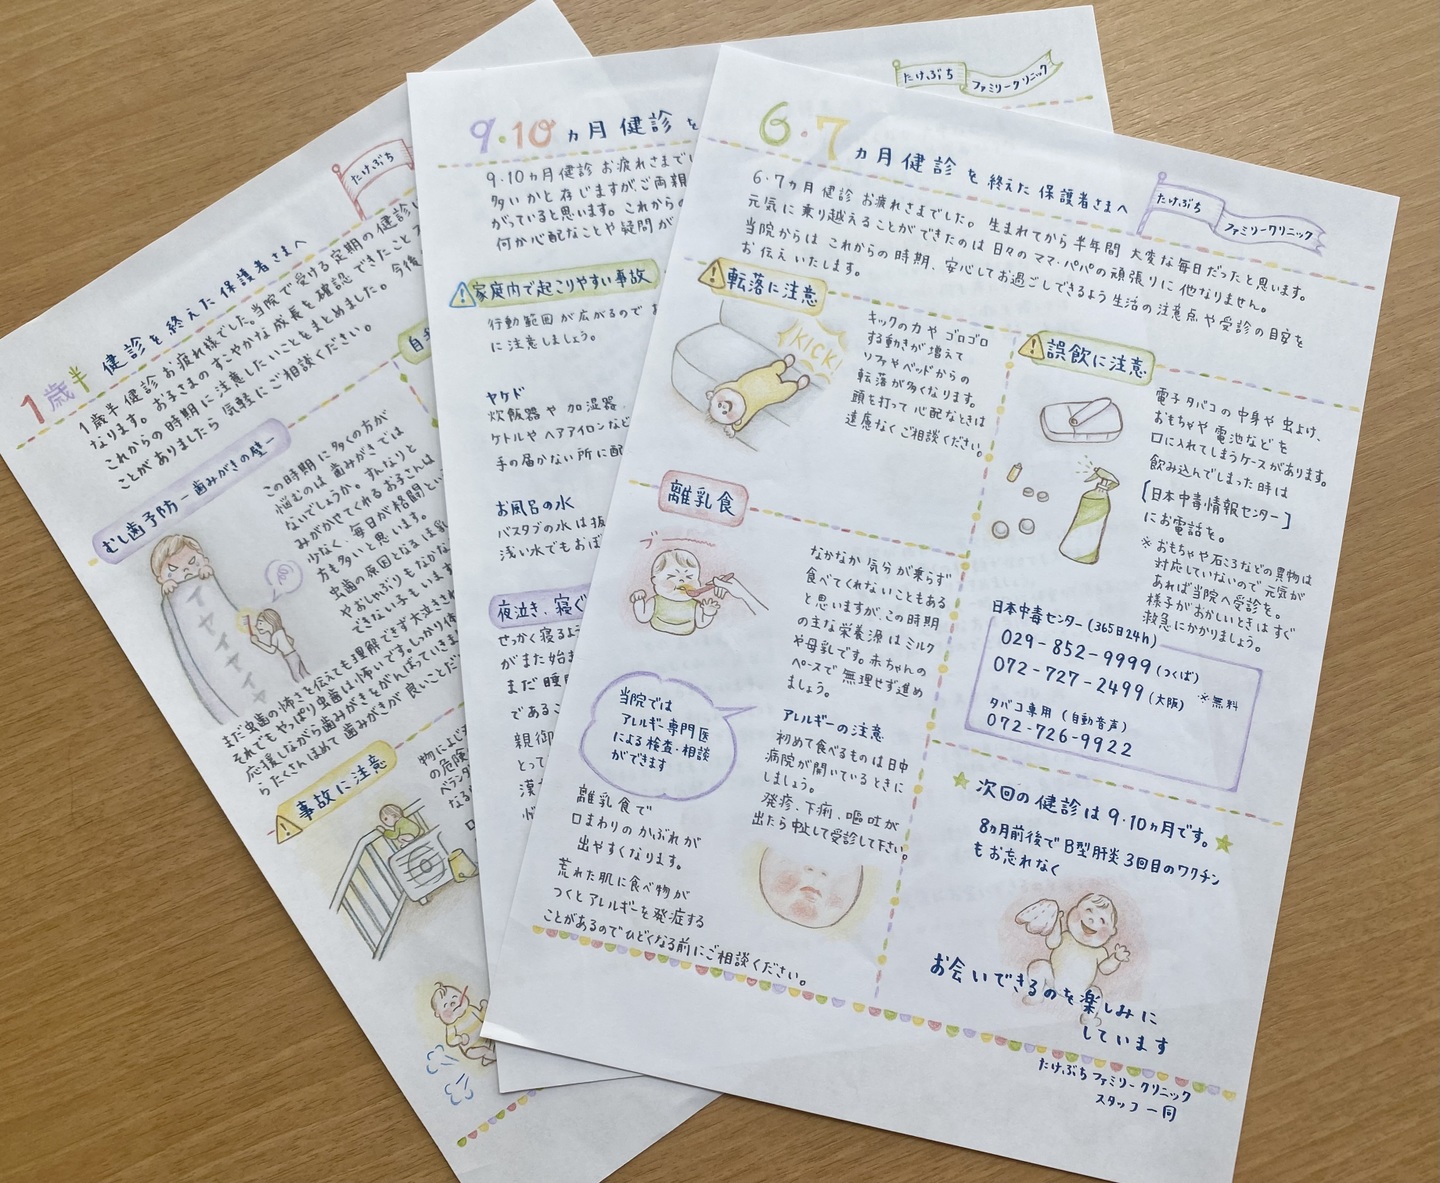 たけぶち
ファミリークリニック
6・7ヵ月健診を終えた保護者さまへ
たけぶち
ファミリークリニック
6・7ヵ月健診 お疲れさまでした。生まれてから半年間 大変な毎日だったと思います。
元気に乗り越えることができたのは日々のママ・パパの頑張りに他なりません。
当院からは これからの時期、安心してお過ごしできるよう生活の注意点や受診の目安を
お伝えいたします。
転落に注意
KICK!
キックの力や ゴロゴロ
する動きが増えて
ソファやベッドからの
転落が多くなります。
頭を打って心配なときは
遠慮なくご相談ください。
誤飲に注意
電子タバコの中身や虫よけ、
おもちゃや電池などを
口に入れてしまうケースがあります。
飲み込んでしまった時は
[日本中毒情報センター]
にお電話を。
※おもちゃや石ころなどの異物は
対応していないので元気が
あれば当院へ受診を。
様子がおかしいときはすぐ
救急にかかりましょう。
日本中毒センター(365日24h)
029-852-9999(つくば)
072-727-2499(大阪) ※無料
タバコ専用(自動音声)
072-726-9922
離乳食
ブー
なかなか気分が乗らず
食べてくれないこともある
と思いますが、この時期
の主な栄養源はミルク
や母乳です。赤ちゃんの
ペースで無理せず進め
ましょう。
当院では
アレルギー専門医
による検査・相談
ができます
アレルギーの注意
初めて食べるものは日中
病院が開いているときに
しましょう。
発疹、下痢、嘔吐が
出たら中止して受診して下さい。
離乳食で
口まわりのかぶれが
出やすくなります。
荒れた肌に食べ物が
つくとアレルギーを発症する
ことがあるのでひどくなる前にご相談ください。
次回の健診は9・10ヵ月です。
8ヵ月前後でB型肝炎3回目のワクチン
もお忘れなく
お会いできるのを楽しみに
しています
たけぶちファミリークリニック
スタッフ一同
9・10ヵ月健診を
9・10ヵ月健診 お疲れさまで
多いかと存じますがご両親
がっていると思います。これからの
何か心配なことや疑問が
家庭内で起こりやすい事故
行動範囲が広がるので
に注意しましょう。
ヤケド
炊飯器や加湿器、
ケトルやヘアアイロンなど
手の届かない所に配
お風呂の水
バスタブの水は抜
浅い水でもおぼ
夜泣き、寝ぐ
せっかく寝るよ
がまた始ま
まだ睡
であるこ
親御
とって
漢方
たけぶち
1歳半健診を終えた保護者さまへ
1歳半健診お疲れ様でした。当院で受ける定期の健診は
なります。お子さまのすこやかな成長を確認できたこと
これからの時期に注意したいことをまとめました。今後
ことがありましたら 気軽にご相談ください。
むし歯予防ー歯みがきの壁ー
この時期に多くの方が
悩むのは歯みがきでは
ないでしょうか。すんなりと
みがかせてくれるお子さんは
少なく、毎日が格闘とい
方も多いと思います。
虫歯の原因となるほ乳
やおしゃぶりもなかな
できない子もいます
イヤイヤイヤイヤ
まだ虫歯の怖さを伝えても理解できず大泣きされ
それでもやっぱり虫歯は怖いです。しっかり後
応援しながら歯みがきをがんばっていきま
らたくさんほめて歯みがきが良いことだ
事故に注意
物によじ
の危険
ベラン
なる